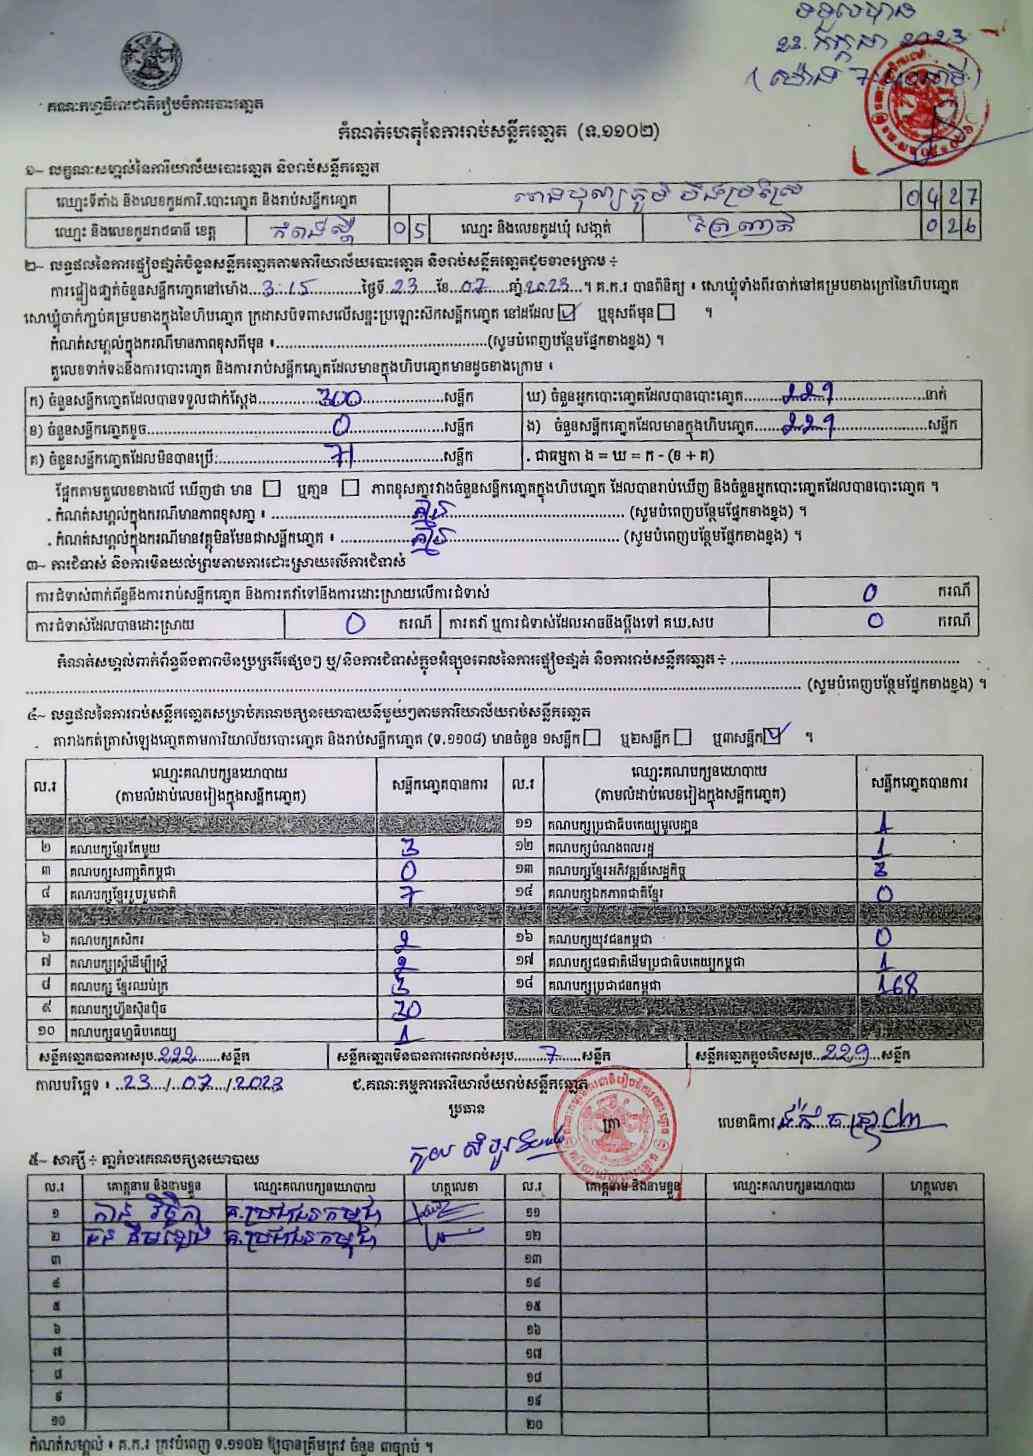 ទទួលបាន
23. កក្កដា 2023
(ម៉ោង 7
គណៈកម្មាធិការជាតិរៀបចំការបោះឆ្នោត
កំណត់ហេតុនៃការរាប់សន្លឹកឆ្នោត (ទ.១១០២)
១- លក្ខណៈសម្គាល់នៃការិយាល័យបោះឆ្នោត និងរាប់សន្លឹកឆ្នោត
ឈ្មោះទីតាំង និងលេខកូដការិ.បោះឆ្នោត និងរាប់សន្លឹកឆ្នោត 0427
ឈ្មោះ និងលេខកូដរាជធានី ខេត្ត កំពង់ស្ពឺ 05 ឈ្មោះ និងលេខកូដឃុំ សង្កាត់ 026
២- លទ្ធផលនៃការផ្ទៀងផ្ទាត់ចំនួនសន្លឹកឆ្នោតតាមការិយាល័យបោះឆ្នោត និងរាប់សន្លឹកឆ្នោតដូចខាងក្រោម ÷
ការផ្ទៀងផ្ទាត់ចំនួនសន្លឹកឆ្នោតនៅម៉ោង 3:15 ថ្ងៃទី 23 ខែ 07 ឆ្នាំ 2023 ។ គ.ក.រ បានពិនិត្យ ៖ សោឃ្លុំទាំងពីរចាក់នៅគម្របខាងក្រៅនៃហិបឆ្នោត
សោឃ្លុំចាក់ភ្ជាប់គម្របខាងក្នុងនៃហិបឆ្នោត ក្រដាសបិទពាសលើសន្ទះប្រឡោះសិកសន្លឹកឆ្នោត នៅដដែល ☑ ឬខុសពីមុន ☐ ។
កំណត់សម្គាល់ក្នុងករណីមានភាពខុសពីមុន ៖ (សូមបំពេញបន្ថែមផ្នែកខាងខ្នង) ។
តួលេខទាក់ទងនឹងការបោះឆ្នោត និងការរាប់សន្លឹកឆ្នោតដែលមានក្នុងហិបឆ្នោតមានដូចខាងក្រោម ៖
ក) ចំនួនសន្លឹកឆ្នោតដែលបានទទួលជាក់ស្តែង 300 សន្លឹក ឃ) ចំនួនអ្នកបោះឆ្នោតដែលបានបោះឆ្នោត 229 នាក់
ខ) ចំនួនសន្លឹកឆ្នោតខូច 0 សន្លឹក ង) ចំនួនសន្លឹកឆ្នោតដែលមានក្នុងហិបឆ្នោត 229 សន្លឹក
គ) ចំនួនសន្លឹកឆ្នោតដែលមិនបានប្រើ: 71 សន្លឹក . ជាធម្មតា ង = ឃ = ក - (ខ + គ)
ផ្អែកតាមតួលេខខាងលើ ឃើញថា មាន ☐ ឬគ្មាន ☐ ភាពខុសគ្នារវាងចំនួនសន្លឹកឆ្នោតក្នុងហិបឆ្នោត ដែលបានរាប់ឃើញ និងចំនួនអ្នកបោះឆ្នោតដែលបានបោះឆ្នោត ។
. កំណត់សម្គាល់ក្នុងករណីមានភាពខុសគ្នា ៖ គ្មាន (សូមបំពេញបន្ថែមផ្នែកខាងខ្នង) ។
. កំណត់សម្គាល់ក្នុងករណីមានវត្ថុមិនមែនជាសន្លឹកឆ្នោត ៖ គ្មាន (សូមបំពេញបន្ថែមផ្នែកខាងខ្នង) ។
៣- ការជំទាស់ និងការមិនយល់ព្រមតាមការដោះស្រាយលើការជំទាស់
ការជំទាស់ពាក់ព័ន្ធនឹងការរាប់សន្លឹកឆ្នោត និងការតវ៉ាទៅនឹងការដោះស្រាយលើការជំទាស់ 0 ករណី
ការជំទាស់ដែលបានដោះស្រាយ 0 ករណី ការតវ៉ា ឬការជំទាស់ដែលអាចនឹងប្តឹងទៅ គឃ.សប 0 ករណី
កំណត់សម្គាល់ពាក់ព័ន្ធនឹងភាពមិនប្រក្រតីផ្សេងៗ ឬ/និងការជំទាស់ក្នុងអំឡុងពេលនៃការផ្ទៀងផ្ទាត់ និងការរាប់សន្លឹកឆ្នោត ÷
(សូមបំពេញបន្ថែមផ្នែកខាងខ្នង) ។
៤- លទ្ធផលនៃការរាប់សន្លឹកឆ្នោតសម្រាប់គណបក្សនយោបាយនីមួយៗតាមការិយាល័យរាប់សន្លឹកឆ្នោត
តារាងកត់ត្រាសំឡេងឆ្នោតតាមការិយាល័យបោះឆ្នោត និងរាប់សន្លឹកឆ្នោត (ទ.១១០៨) មានចំនួន ១សន្លឹក ☐ ឬ២សន្លឹក ☐ ឬ៣សន្លឹក ☑ ។
ល.រ ឈ្មោះគណបក្សនយោបាយ (តាមលំដាប់លេខរៀងក្នុងសន្លឹកឆ្នោត) សន្លឹកឆ្នោតបានការ ល.រ ឈ្មោះគណបក្សនយោបាយ (តាមលំដាប់លេខរៀងក្នុងសន្លឹកឆ្នោត) សន្លឹកឆ្នោតបានការ
១១ គណបក្សប្រជាធិបតេយ្យមូលដ្ឋាន 1
២ គណបក្សខ្មែរតែមួយ 3 ១២ គណបក្សបំណងពលរដ្ឋ 1
៣ គណបក្សសញ្ជាតិកម្ពុជា 0 ១៣ គណបក្សខ្មែរអភិវឌ្ឍន៍សេដ្ឋកិច្ច 3
៤ គណបក្សខ្មែររួបរួមជាតិ 7 ១៤ គណបក្សឯកភាពជាតិខ្មែរ 0
៦ គណបក្សកសិករ 2 ១៦ គណបក្សយុវជនកម្ពុជា 0
៧ គណបក្សស្ត្រីដើម្បីស្ត្រី 2 ១៧ គណបក្សជនជាតិដើមប្រជាធិបតេយ្យកម្ពុជា 1
៨ គណបក្ស ខ្មែរឈប់ក្រ 3 ១៨ គណបក្សប្រជាជនកម្ពុជា 168
៩ គណបក្សហ៊្វុនស៊ិនប៉ិច 30
១០ គណបក្សធម្មាធិបតេយ្យ 1
សន្លឹកឆ្នោតបានការសរុប 222 សន្លឹក សន្លឹកឆ្នោតមិនបានការពេលរាប់សរុប 7 សន្លឹក សន្លឹកឆ្នោតក្នុងហិបសរុប 229 សន្លឹក
កាលបរិច្ឆេទ ៖ 23 / 07 / 2023 ជ.គណៈកម្មការការិយាល័យរាប់សន្លឹកឆ្នោត
ប្រធាន
លេខាធិការ
៥- សាក្សី ÷ ភ្នាក់ងារគណបក្សនយោបាយ
ល.រ គោត្តនាម និងនាមខ្លួន ឈ្មោះគណបក្សនយោបាយ ហត្ថលេខា ល.រ គោត្តនាម និងនាមខ្លួន ឈ្មោះគណបក្សនយោបាយ ហត្ថលេខា
១ គ.ប្រជាជនកម្ពុជា ១១
២ គ.ប្រជាជនកម្ពុជា ១២
៣ ១៣
៤ ១៤
៥ ១៥
៦ ១៦
៧ ១៧
៨ ១៨
៩ ១៩
១០ ២០
កំណត់សម្គាល់ ៖ គ.ក.រ ត្រូវបំពេញ ទ.១១០២ ឱ្យបានត្រឹមត្រូវ ចំនួន ៣ច្បាប់ ។